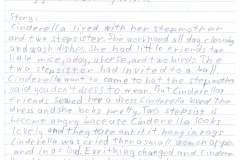 Story:
Cinderella lived with her stepmother
and two stepsister. She work hard all day cleaning
and wash dishes. She had little friends two
little mice, a dog, a horse, and two birds. The
two stepsister had invited to a ball.
Cinderella want to came to bat the stepmother
said you don't dress to wear. But Cinderellas
friends sewed her a dress. Cinderella loved the
dress and she looks pretty. Two stepsister is
become angry because Cinderella looks
lovely and they tore until it being in rags
Cinderella was cried then a small women appe
Evrithing changed and Cinde